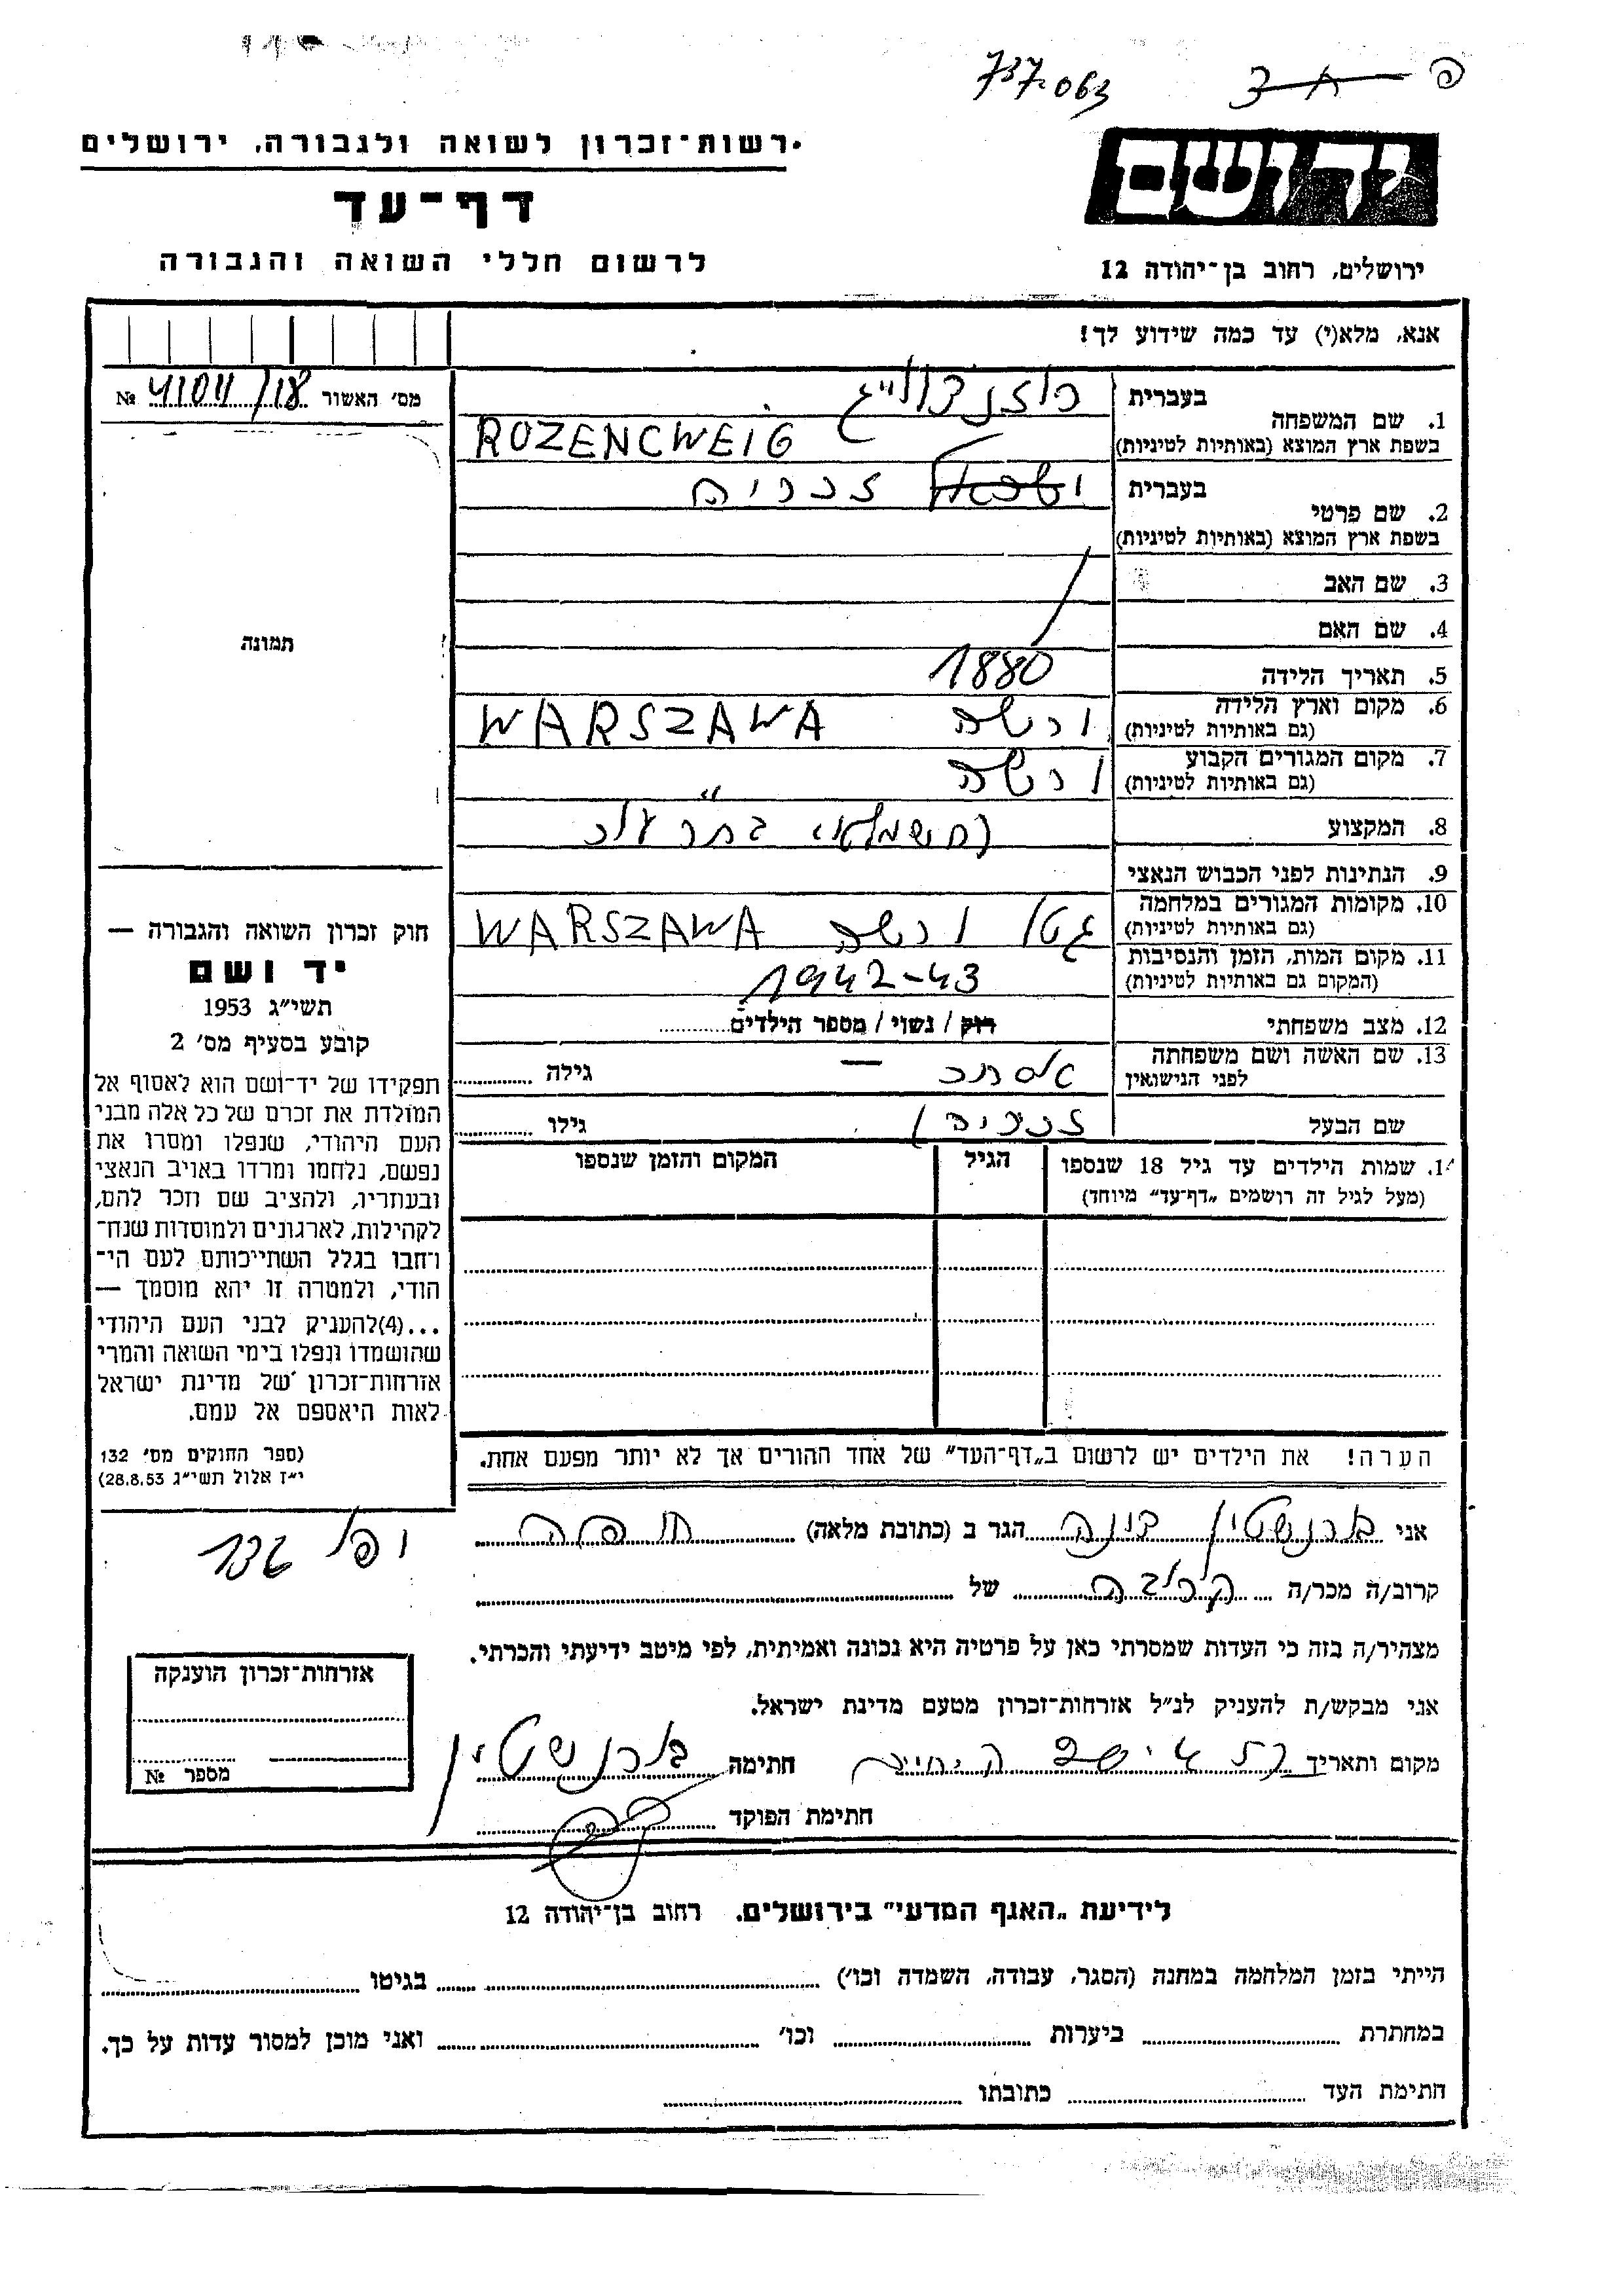 737.063
רשות-זכרון לשואה ולגבורה, ירושלים
דף-עד
לרשום חללי השואה והגבורה
יד ושם
ירושלים, רחוב בן-יהודה 12
אנא, מלא(י) עד כמה שידוע לך!
מס' האשור №
1. שם המשפחה
בעברית רוזנצוייג
בשפת ארץ המוצא (באותיות לטיניות) ROZENCWEIG
2. שם פרטי
בעברית ישראל זכריה
בשפת ארץ המוצא (באותיות לטיניות)
3. שם האב
4. שם האם
5. תאריך הלידה 1880
6. מקום וארץ הלידה ורשה WARSZAWA
(גם באותיות לטיניות)
7. מקום המגורים הקבוע ורשה "
(גם באותיות לטיניות)
8. המקצוע
9. הנתינות לפני הכבוש הנאצי
10. מקומות המגורים במלחמה גטו ורשה WARSZAWA
(גם באותיות לטיניות)
11. מקום המות, הזמן והנסיבות 1942-43
(המקום גם באותיות לטיניות)
12. מצב משפחתי רוק / נשוי / מספר הילדים
13. שם האשה ושם משפחתה אסתר — גילה
לפני הנישואין
שם הבעל זכריה) גילו
1. שמות הילדים עד גיל 18 שנספו הגיל המקום והזמן שנספו
(מעל לגיל זה רושמים „דף-עד" מיוחד)
תמונה
חוק זכרון השואה והגבורה —
יד ושם
תשי"ג 1953
קובע בסעיף מס' 2
תפקידו של יד-ושם הוא לאסוף אל
המולדת את זכרם של כל אלה מבני
העם היהודי, שנפלו ומסרו את
נפשם, נלחמו ומרדו באויב הנאצי
ובעוזריו, ולהציב שם וזכר להם,
לקהילות, לארגונים ולמוסדות שנח-
רחבו בגלל השתייכותם לעם הי-
הודי, ולמטרה זו יהא מוסמך —
...(4)להעניק לבני העם היהודי
שהושמדו ונפלו בימי השואה והמרי
אזרחות-זכרון של מדינת ישראל
לאות היאספם אל עמם.
(ספר החוקים מס' 132
י"ז אלול תשי"ג 28.8.53)
הערה! את הילדים יש לרשום ב„דף-העד" של אחד ההורים אך לא יותר מפעם אחת.
אני ברנשטין בונה הגר ב (כתובת מלאה) חיפה
קרוב/ה מכר/ה קרובה של
מצהיר/ה בזה כי העדות שמסרתי כאן על פרטיה היא נכונה ואמיתית, לפי מיטב ידיעתי והכרתי.
אני מבקש/ת להעניק לנ"ל אזרחות-זכרון מטעם מדינת ישראל.
מקום ותאריך חתימה ברנשטין
חתימת הפוקד
אזרחות-זכרון הוענקה
מספר №
לידיעת „האגף המדעי" בירושלים. רחוב בן-יהודה 12
הייתי בזמן המלחמה במחנה (הסגר, עבודה, השמדה וכו') בגיטו
במחתרת ביערות וכו' ואני מוכן למסור עדות על כך.
חתימת העד כתובתו